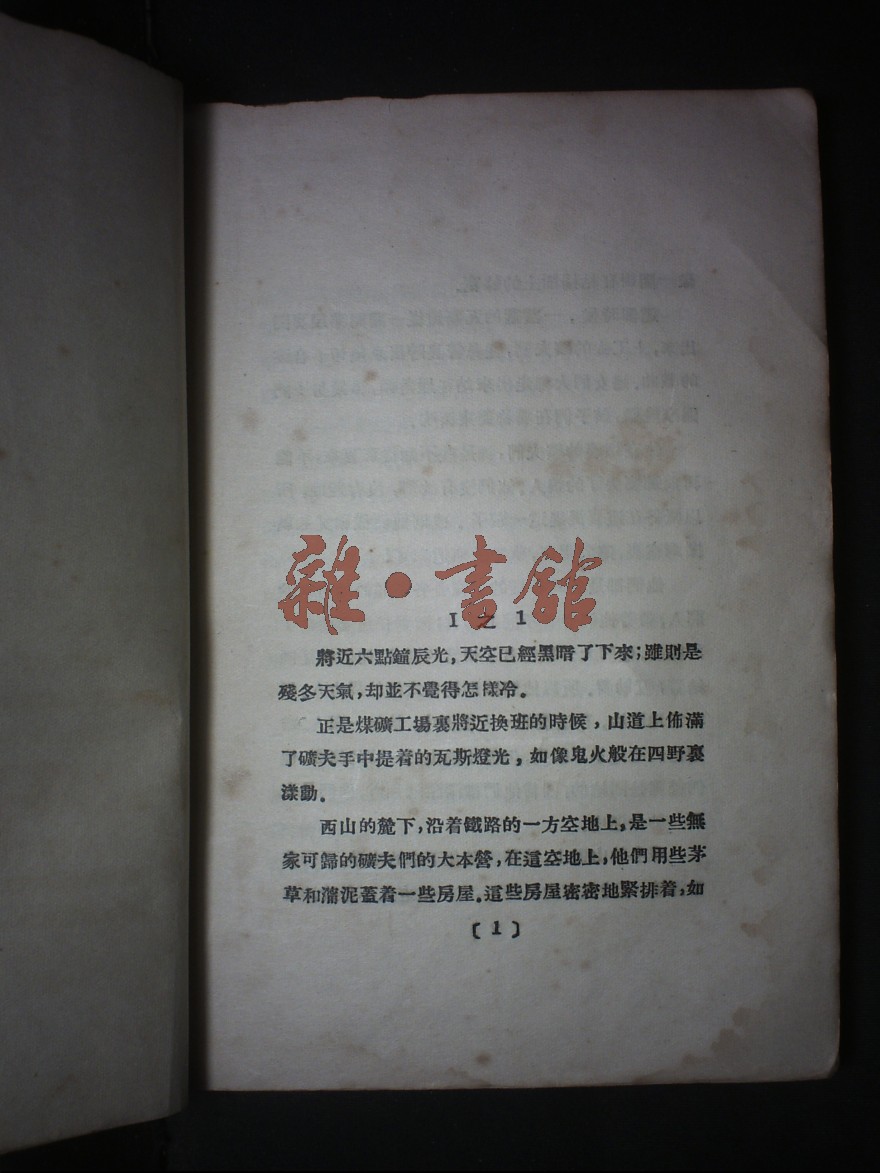 雜·書舘
I 之 1
將近六點鐘辰光，天空已經黑暗了下來；雖則是
殘冬天氣，却並不覺得怎樣冷。
正是煤礦工場裏將近換班的時候，山道上佈滿
了礦夫手中提着的瓦斯燈光，如像鬼火般在四野裏
漾動。
西山的麓下，沿着鐵路的一方空地上，是一些無
家可歸的礦夫們的大本營，在這空地上，他們用些茅
草和灡泥蓋着一些房屋。這些房屋密密地緊排着，如
〔1〕